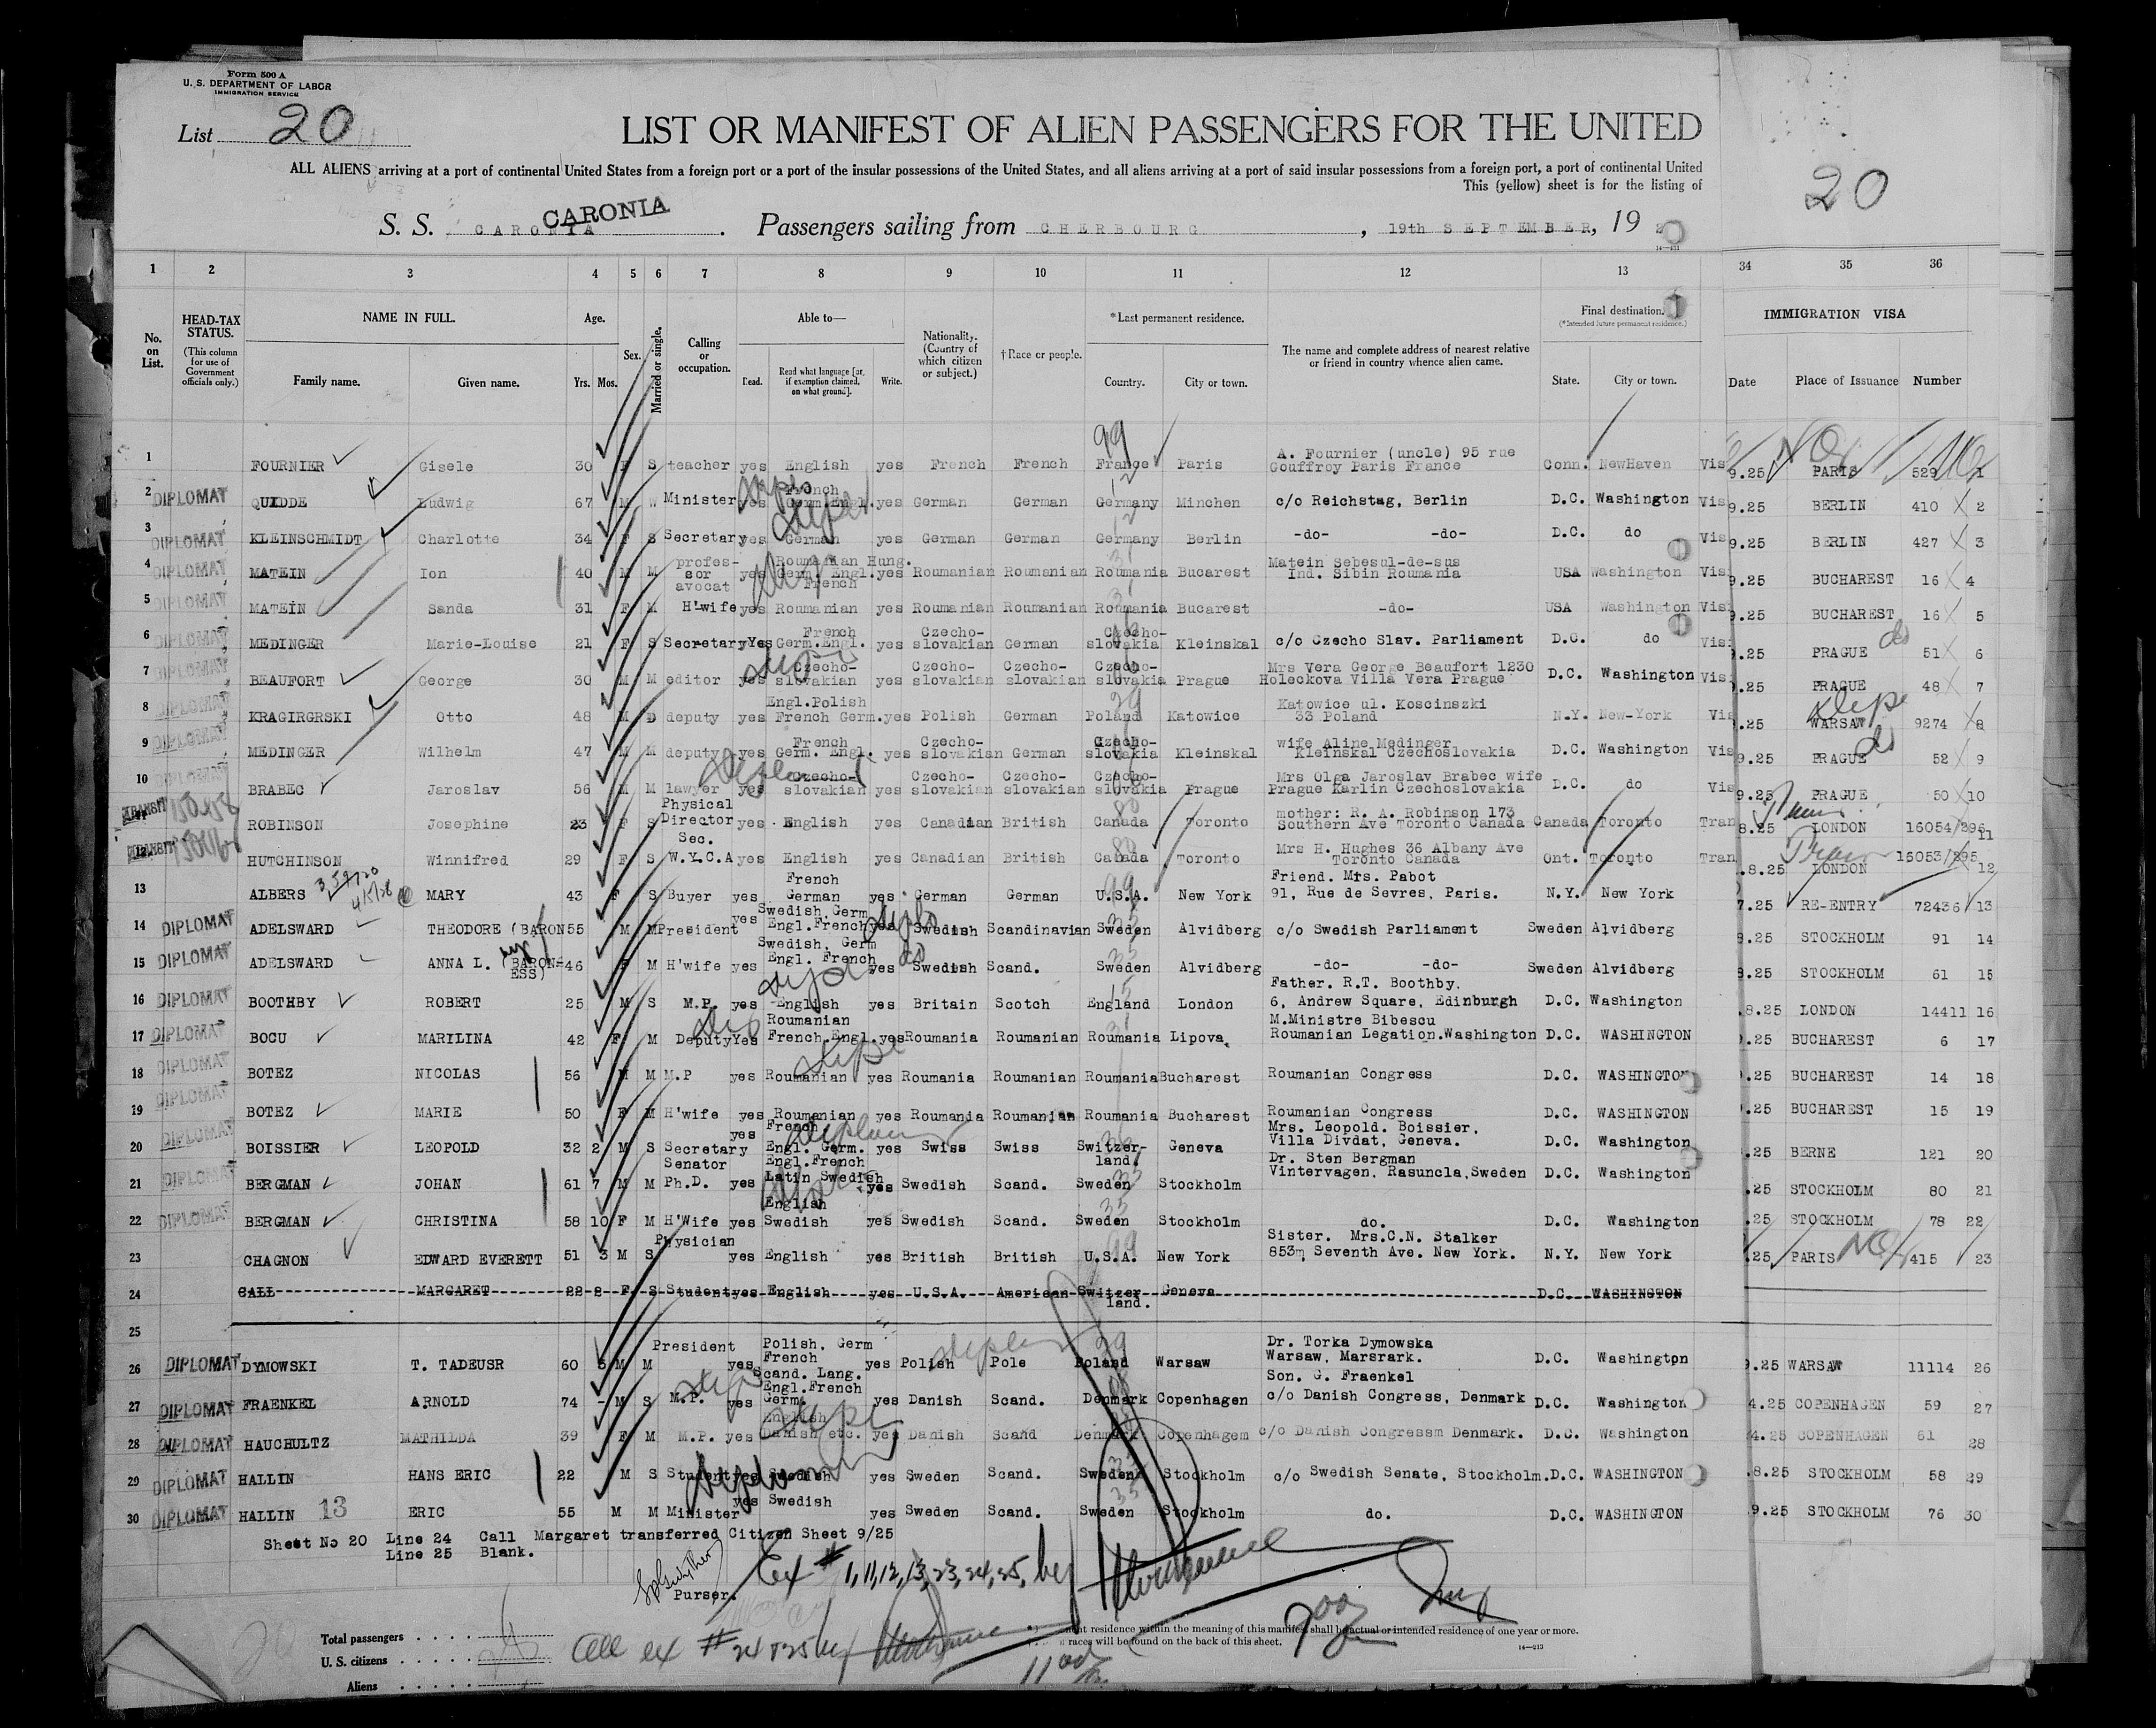 Form 500 A
U. S. DEPARTMENT OF LABOR
IMMIGRATION SERVICE
List 20
LIST OR MANIFEST OF ALIEN PASSENGERS FOR THE UNITED
ALL ALIENS arriving at a port of continental United States from a foreign port or a port of the insular possessions of the United States, and all aliens arriving at a port of said insular possessions from a foreign port, a port of continental United
This (yellow) sheet is for the listing of
20
S. S. CARONIA CARONIA . Passengers sailing from CHERBOURG , 19th SEPTEMBER, 19
1 2 3 4 5 6 7 8 9 10 11 12 13 34 35 36
No. on List.
HEAD-TAX STATUS.
(This column for use of Government officials only.)
NAME IN FULL.
Family name. Given name.
Age.
Yrs. Mos.
Sex.
Married or single.
Calling or occupation.
Able to—
Read. Read what language [or, if exemption claimed, on what ground]. Write.
Nationality. (Country of which citizen or subject.)
†Race or people.
*Last permanent residence.
Country. City or town.
The name and complete address of nearest relative or friend in country whence alien came.
Final destination.
(*Intended future permanent residence.)
State. City or town.
IMMIGRATION VISA
Date Place of Issuance Number
1 FOURNIER Gisele 30 F S teacher yes English yes French French France Paris A. Fournier (uncle) 95 rue Gouffroy Paris France Conn. NewHaven Vis 9.25 PARIS 529 1
2 DIPLOMAT QUIDDE Ludwig 67 M W Minister yes French Germ.Engl. yes German German Germany Minchen c/o Reichstag, Berlin D.C. Washington Vis 9.25 BERLIN 410 2
3 DIPLOMAT KLEINSCHMIDT Charlotte 34 F S Secretary yes German yes German German Germany Berlin -do- -do- D.C. do Vis 9.25 BERLIN 427 3
4 DIPLOMAT MATEIN Ion 40 M M profes-sor avocat yes Roumanian Hung. Germ. Engl. French yes Roumanian Roumanian Roumania Bucarest Matein Sebesul-de-sus Ind. Sibin Roumania USA Washington Vis 9.25 BUCHAREST 16 4
5 DIPLOMAT MATEIN Sanda 31 F M H'wife yes Roumanian yes Roumanian Roumanian Roumania Bucarest -do- USA Washington Vis 9.25 BUCHAREST 16 5
6 DIPLOMAT MEDINGER Marie-Louise 21 F S Secretary Yes French Germ.Engl. yes Czecho-slovakian German Czecho-slovakia Kleinskal c/o Czecho Slav. Parliament D.C. do Vis .25 PRAGUE 51 6
7 DIPLOMAT BEAUFORT George 30 M M editor yes Czecho-slovakian yes Czecho-slovakian Czecho-slovakian Czecho-slovakia Prague Mrs Vera George Beaufort 1230 Holeckova Villa Vera Prague D.C. Washington Vis .25 PRAGUE 48 7
8 DIPLOMAT KRAGIRGRSKI Otto 48 M D deputy yes Engl.Polish French Germ. yes Polish German Poland Katowice Katowice ul. Koscinszki 33 Poland N.Y. New-York Vis .25 WARSAW 9274 8
9 DIPLOMAT MEDINGER Wilhelm 47 M M deputy yes French Germ. Engl. yes Czecho-slovakian German Czecho-slovakia Kleinskal wife Aline Medinger Kleinskal Czechoslovakia D.C. Washington Vis 9.25 PRAGUE 52 9
10 DIPLOMAT BRABEC Jaroslav 56 M M lawyer yes Czecho-slovakian yes Czecho-slovakian Czecho-slovakian Czecho-slovakia Prague Mrs Olga Jaroslav Brabec wife Prague Karlin Czechoslovakia D.C. do Vis 9.25 PRAGUE 50 10
11 TRANSIT ROBINSON Josephine 23 F S Physical Director yes English yes Canadian British Canada Toronto mother: R. A. Robinson 173 Southern Ave Toronto Canada Canada Toronto Tran 8.25 LONDON 16054/296 11
12 TRANSIT HUTCHINSON Winnifred 29 F S Sec. W.Y.C.A yes English yes Canadian British Canada Toronto Mrs H. Hughes 36 Albany Ave Toronto Canada Ont. Toronto Tran .8.25 LONDON 16053/295 12
13 ALBERS MARY 43 F S Buyer yes French German yes German German U.S.A. New York Friend. Mrs. Pabot 91, Rue de Sevres, Paris. N.Y. New York 7.25 RE-ENTRY 72436 13
14 DIPLOMAT ADELSWARD THEODORE (BARON 55 M M President yes Swedish, Germ Engl.French yes Swedish Scandinavian Sweden Alvidberg c/o Swedish Parliament Sweden Alvidberg 8.25 STOCKHOLM 91 14
15 DIPLOMAT ADELSWARD ANNA L. (BARON-ESS) 46 F M H'wife yes Swedish, Germ Engl. French yes Swedish Scand. Sweden Alvidberg -do- -do- Sweden Alvidberg 8.25 STOCKHOLM 61 15
16 DIPLOMAT BOOTHBY ROBERT 25 M S M.P. yes English yes Britain Scotch England London Father. R.T. Boothby. 6, Andrew Square, Edinburgh D.C. Washington .8.25 LONDON 14411 16
17 DIPLOMAT BOCU MARILINA 42 F M Deputy Yes Roumanian French.Engl. yes Roumania Roumanian Roumania Lipova. M.Ministre Bibescu Roumanian Legation.Washington D.C. WASHINGTON .25 BUCHAREST 6 17
18 DIPLOMAT BOTEZ NICOLAS 56 M M M.P yes Roumanian yes Roumania Roumanian Roumania Bucharest Roumanian Congress D.C. WASHINGTON .25 BUCHAREST 14 18
19 DIPLOMAT BOTEZ MARIE 50 F M H'wife yes Roumanian yes Roumania Roumanian Roumania Bucharest Roumanian Congress D.C. WASHINGTON .25 BUCHAREST 15 19
20 DIPLOMAT BOISSIER LEOPOLD 32 2 M S Secretary yes French Engl. Germ. yes Swiss Swiss Switzer-land. Geneva Mrs. Leopold. Boissier, Villa Divdat, Geneva. D.C. Washington .25 BERNE 121 20
21 DIPLOMAT BERGMAN JOHAN 61 7 M M Senator Ph.D. yes Engl.French Latin Swedish yes Swedish Scand. Sweden Stockholm Dr. Sten Bergman Vintervagen, Rasuncla,Sweden D.C. Washington .25 STOCKHOLM 80 21
22 DIPLOMAT BERGMAN CHRISTINA 58 10 F M H'Wife yes English Swedish yes Swedish Scand. Sweden Stockholm do. D.C. Washington .25 STOCKHOLM 78 22
23 CHAGNON EDWARD EVERETT 51 3 M S Physician yes English yes British British U.S.A. New York Sister. Mrs.C.N. Stalker 853m Seventh Ave. New York. N.Y. New York .25 PARIS 415 23
24 CALL MARGARET 22 2 F S Student yes English yes U.S.A. American Switzer-land. Geneva D.C. WASHINGTON
25
26 DIPLOMAT DYMOWSKI T. TADEUSR 60 5 M M President yes Polish, Germ French yes Polish Pole Poland Warsaw Dr. Torka Dymowska Warsaw, Marsrark. D.C. Washington 9.25 WARSAW 11114 26
27 DIPLOMAT FRAENKEL ARNOLD 74 - M S M.P. yes Scand. Lang. Engl.French Germ. yes Danish Scand. Denmark Copenhagen Son. G. Fraenkel c/o Danish Congress, Denmark D.C. Washington 4.25 COPENHAGEN 59 27
28 DIPLOMAT HAUCHULTZ MATHILDA 39 F M M.P. yes English Danish etc. yes Danish Scand Denmark Copenhagem c/o Danish Congressm Denmark. D.C. Washington 4.25 COPENHAGEN 61 28
29 DIPLOMAT HALLIN HANS ERIC 22 M S Student yes Swedish yes Sweden Scand. Sweden Stockholm c/o Swedish Senate, Stockholm. D.C. WASHINGTON .8.25 STOCKHOLM 58 29
30 DIPLOMAT HALLIN 13 ERIC 55 M M Minister yes Swedish yes Sweden Scand. Sweden Stockholm do. D.C. WASHINGTON 9.25 STOCKHOLM 76 30
Sheet No 20 Line 24 Call Margaret transferred Citizen Sheet 9/25
Line 25 Blank.
Purser.
Ex # 1,11,12,13,23,24,25, by
All ex # 24 & 25 by
Total passengers
U. S. citizens
Aliens
residence within the meaning of this manifest shall be actual or intended residence of one year or more.
races will be found on the back of this sheet.
14—213